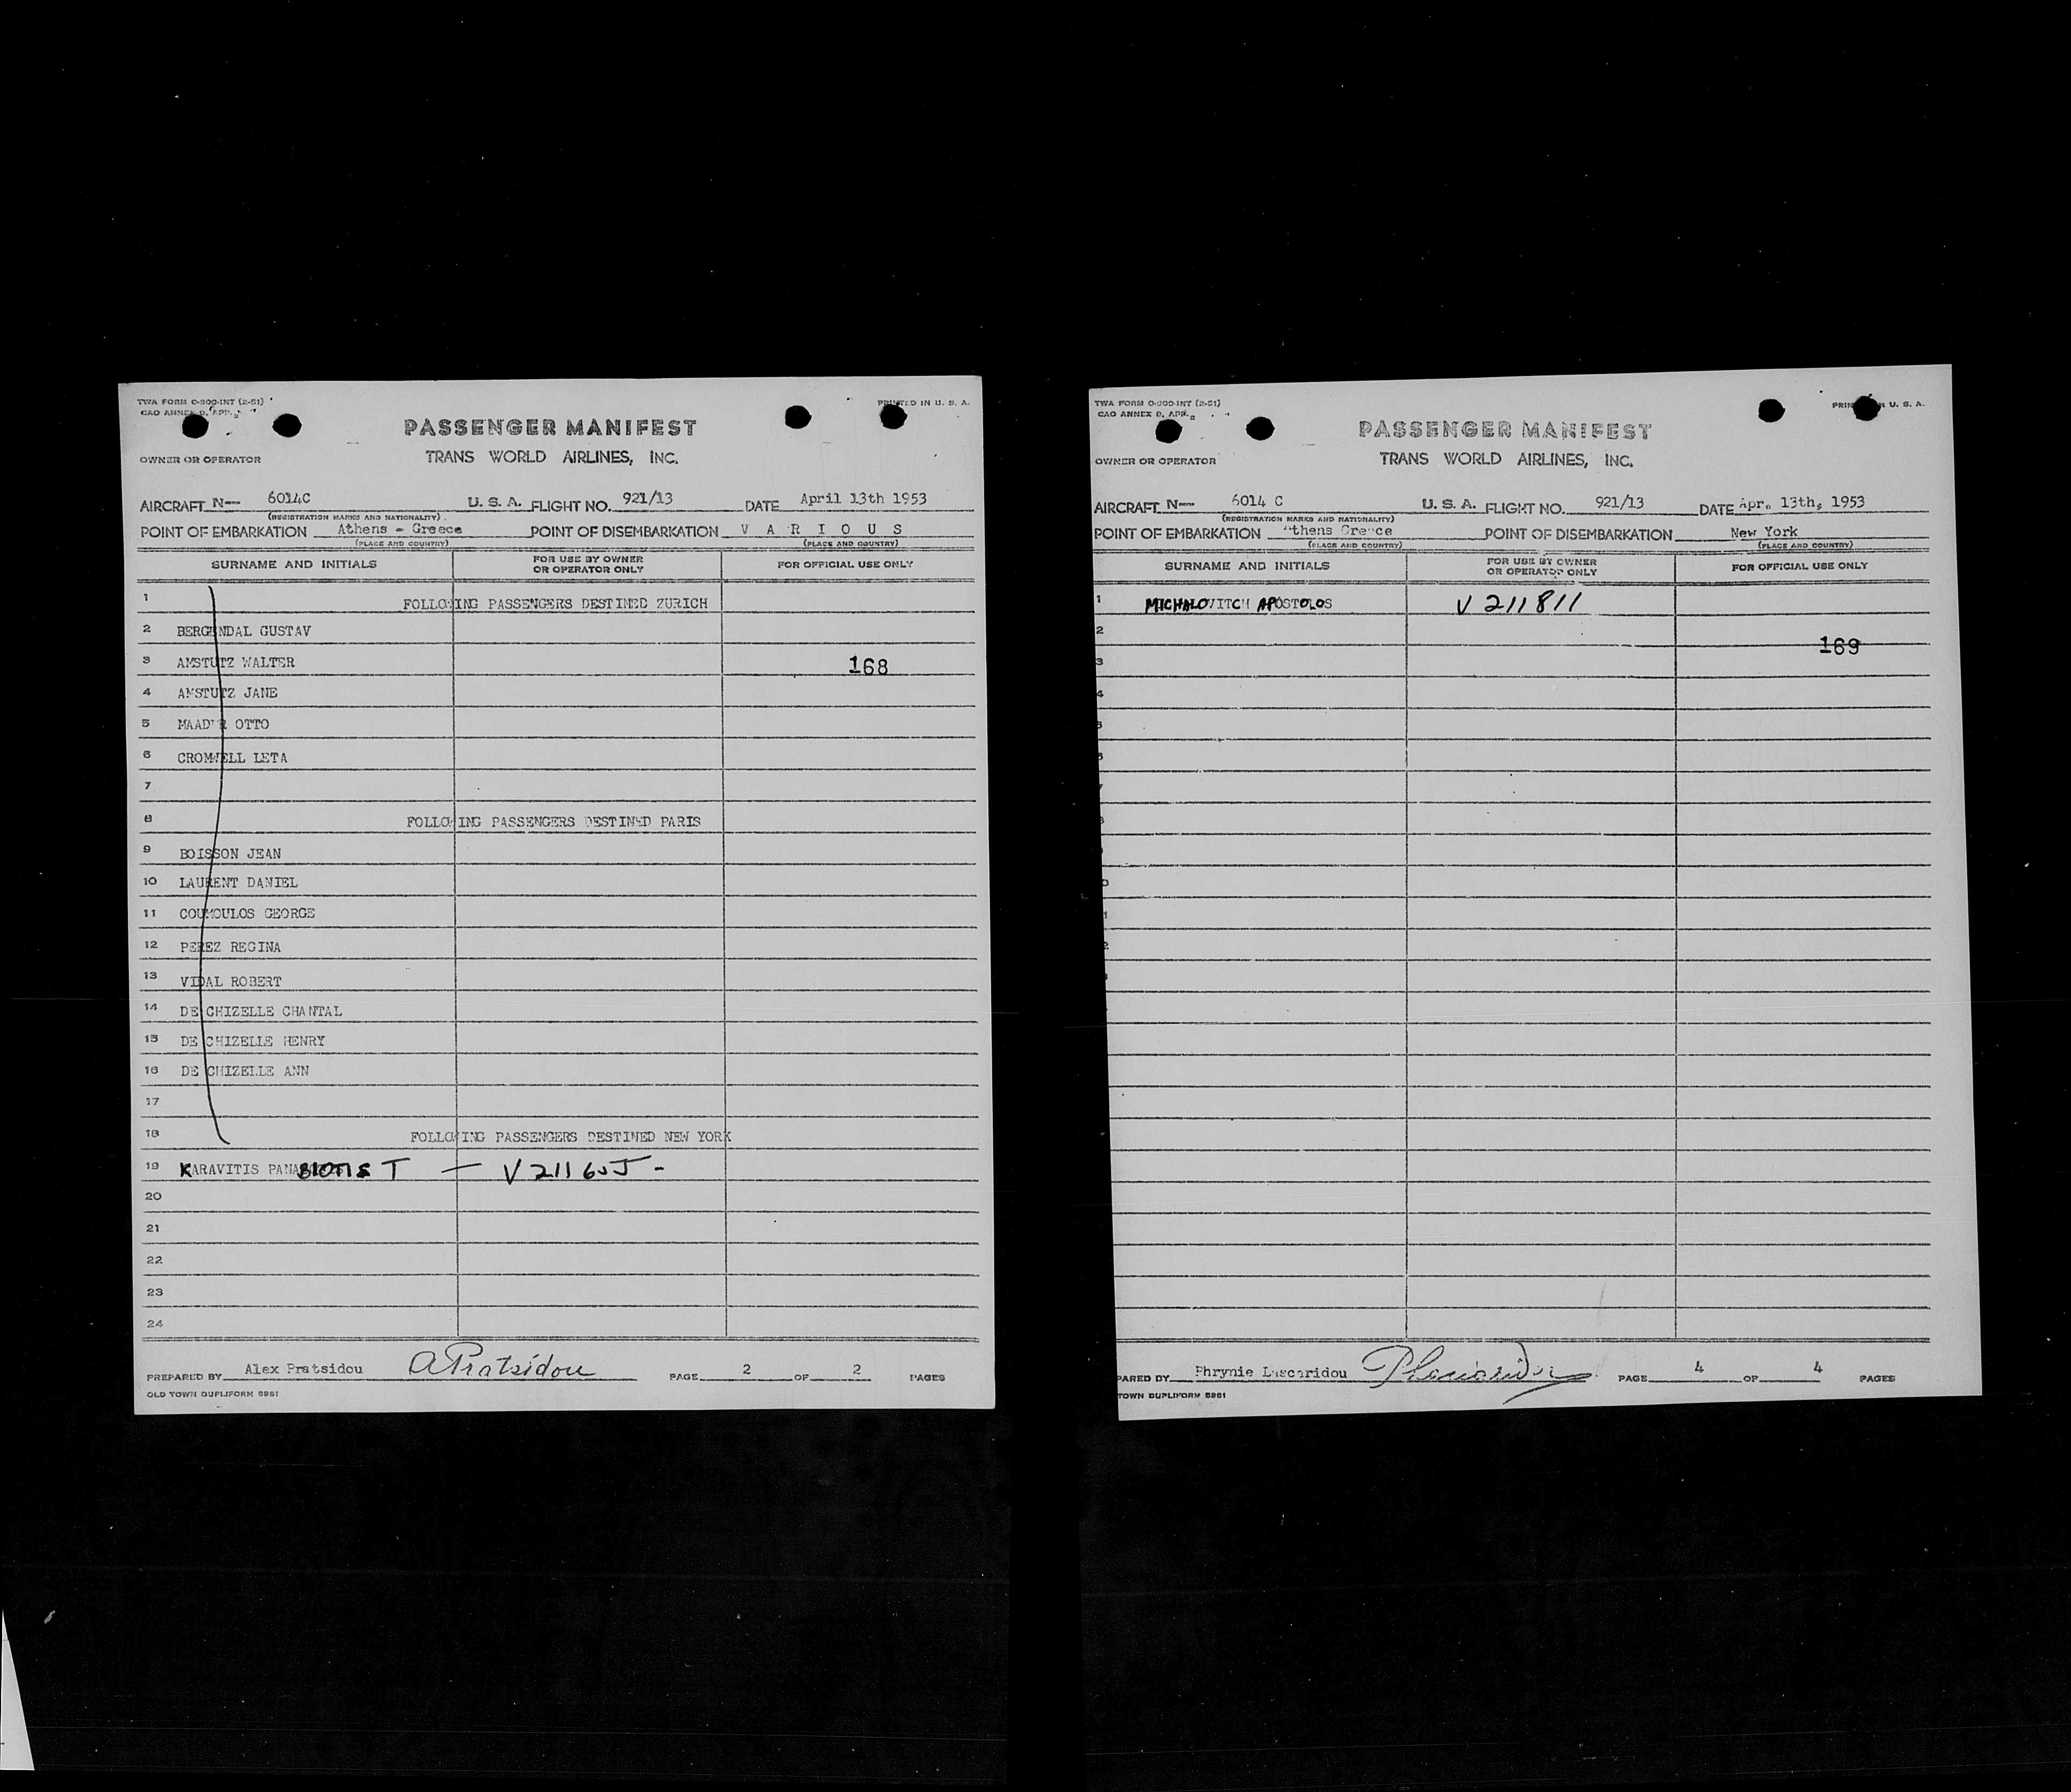 TWA FORM O-200-INT (2-51)
CAO ANNEX 9, APP.
PRINTED IN U. S. A.
PASSENGER MANIFEST
OWNER OR OPERATOR
TRANS WORLD AIRLINES, INC.
AIRCRAFT N— 6014C U. S. A. FLIGHT NO. 921/13 DATE April 13th 1953
(REGISTRATION MARKS AND NATIONALITY)
POINT OF EMBARKATION Athens - Greece POINT OF DISEMBARKATION V A R I O U S
(PLACE AND COUNTRY) (PLACE AND COUNTRY)
SURNAME AND INITIALS FOR USE BY OWNER OR OPERATOR ONLY FOR OFFICIAL USE ONLY
1 FOLLOWING PASSENGERS DESTINED ZURICH
2 BERGENDAL GUSTAV
3 AMSTUTZ WALTER 168
4 AMSTUTZ JANE
5 MAADER OTTO
6 CROMWELL LETA
7
8 FOLLOWING PASSENGERS DESTINED PARIS
9 BOISSON JEAN
10 LAURENT DANIEL
11 COUMOULOS GEORGE
12 PEREZ REGINA
13 VIDAL ROBERT
14 DE CHIZELLE CHANTAL
15 DE CHIZELLE HENRY
16 DE CHIZELLE ANN
17
18 FOLLOWING PASSENGERS DESTINED NEW YORK
19 KARAVITIS T —
20
21
22
23
24
PREPARED BY Alex Pratsidou APratsidou PAGE 2 OF 2 PAGES
OLD TOWN DUPLIFORM 5961
TWA FORM O-200-INT (2-51)
CAO ANNEX 9, APP.
U. S. A.
PASSENGER MANIFEST
OWNER OR OPERATOR
TRANS WORLD AIRLINES, INC.
AIRCRAFT N— 6014 C U. S. A. FLIGHT NO. 921/13 DATE Apr. 13th, 1953
(REGISTRATION MARKS AND NATIONALITY)
POINT OF EMBARKATION Athens Greece POINT OF DISEMBARKATION New York
(PLACE AND COUNTRY) (PLACE AND COUNTRY)
SURNAME AND INITIALS FOR USE BY OWNER OR OPERATOR ONLY FOR OFFICIAL USE ONLY
1 MICHALOVITCH APOSTOLOS V 211811
2
169
3
4
PARED BY Phrynie Lascaridou PAGE 4 OF 4 PAGES
TOWN DUPLIFORM 5961